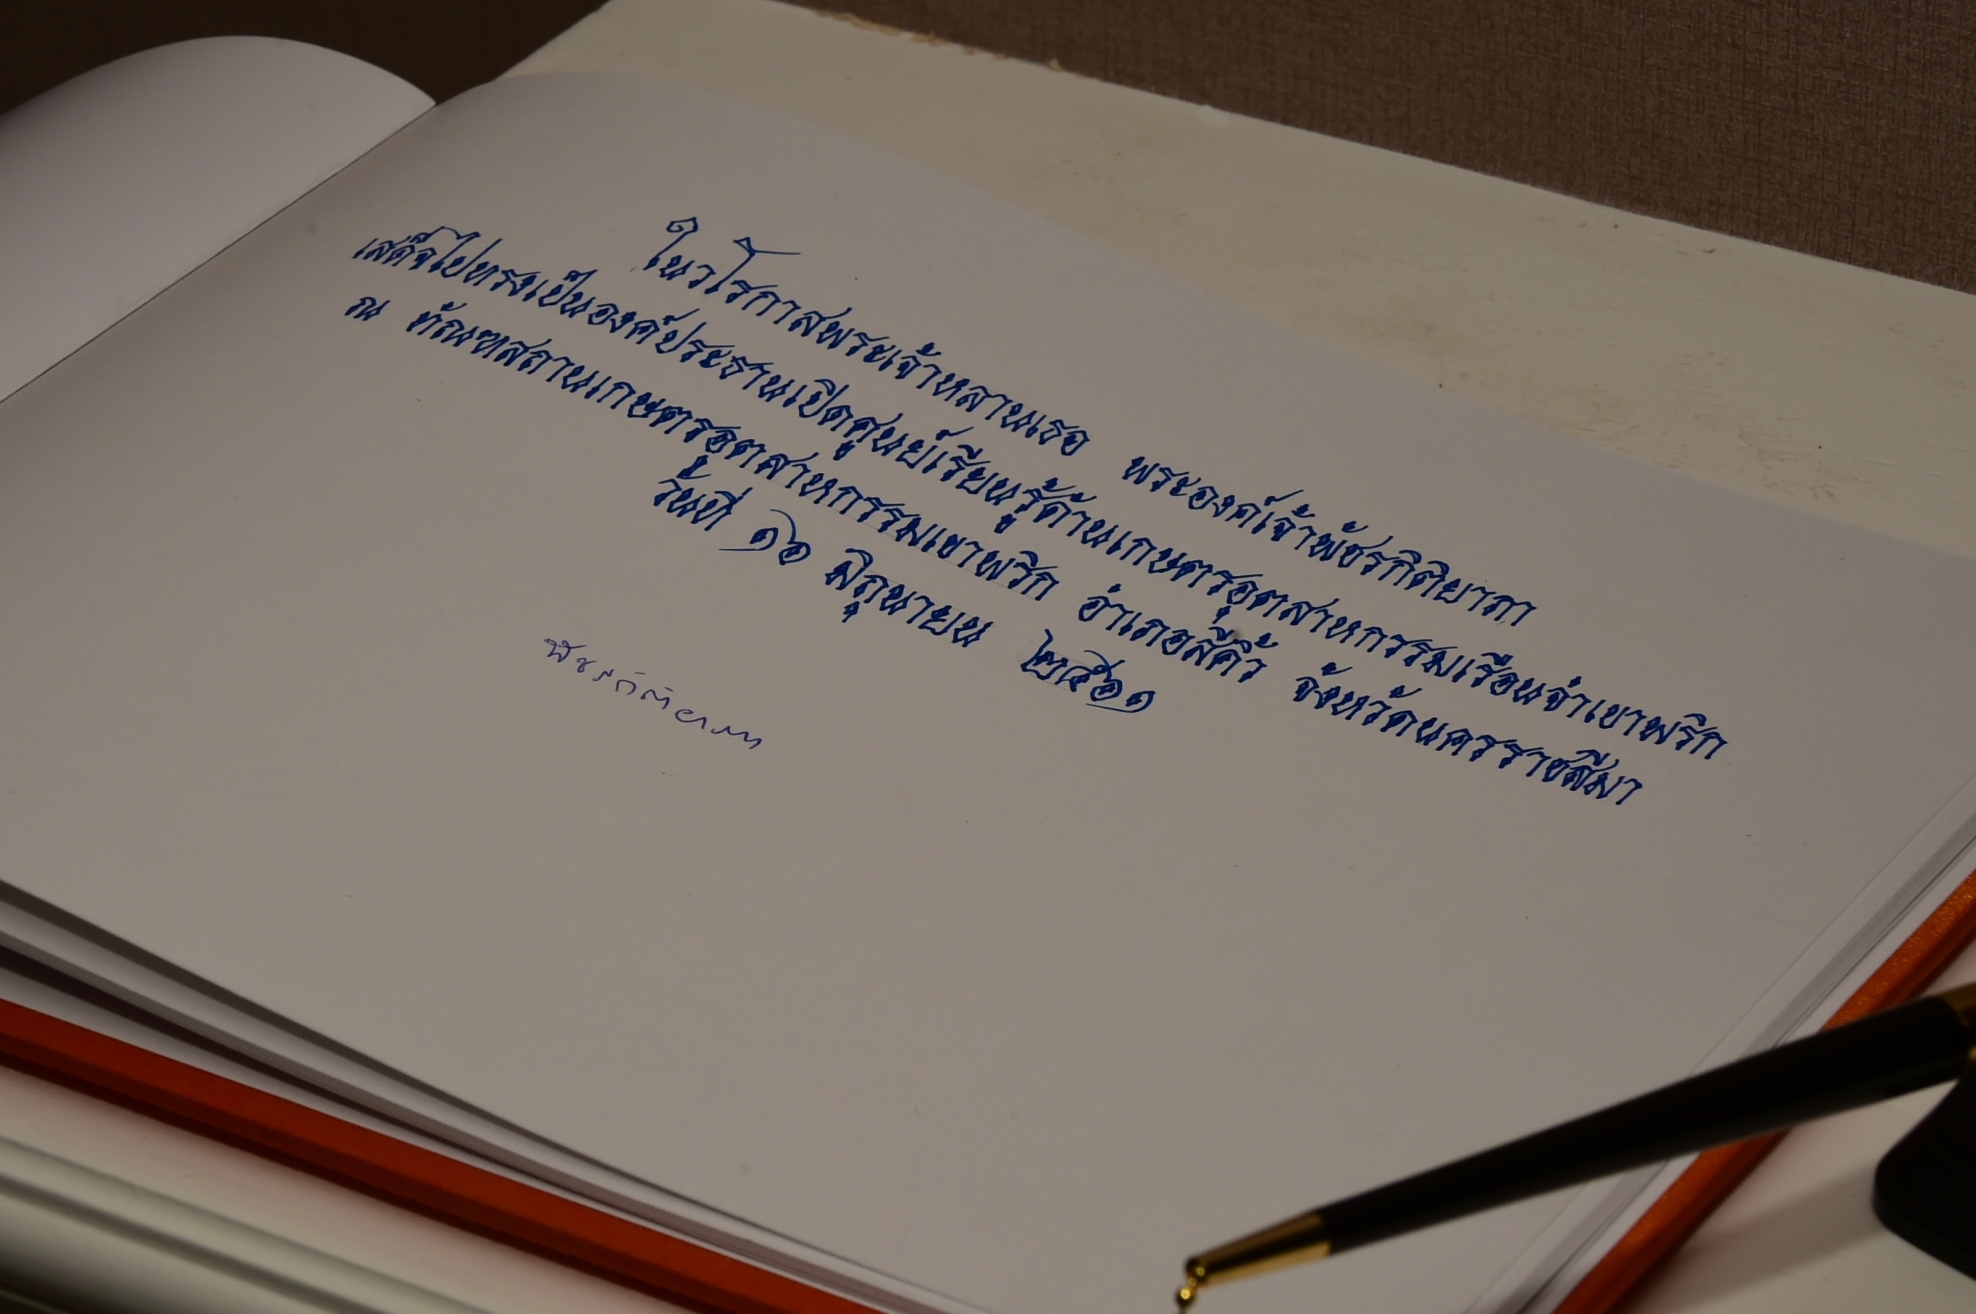 ในวโรกาสพระเจ้าหลานเธอ พระองค์เจ้าพัชรกิติยาภา
เสด็จไปทรงเป็นองค์ประธานเปิดศูนย์เรียนรู้ด้านเกษตรอุตสาหกรรมเรือนจำเขาพริก
ณ ทัณฑสถานเกษตรอุตสาหกรรมเขาพริก อำเภอสีคิ้ว จังหวัดนครราชสีมา
วันที่ ๑๖ มิถุนายน ๒๕๖๑
พัชรกิติยาภา